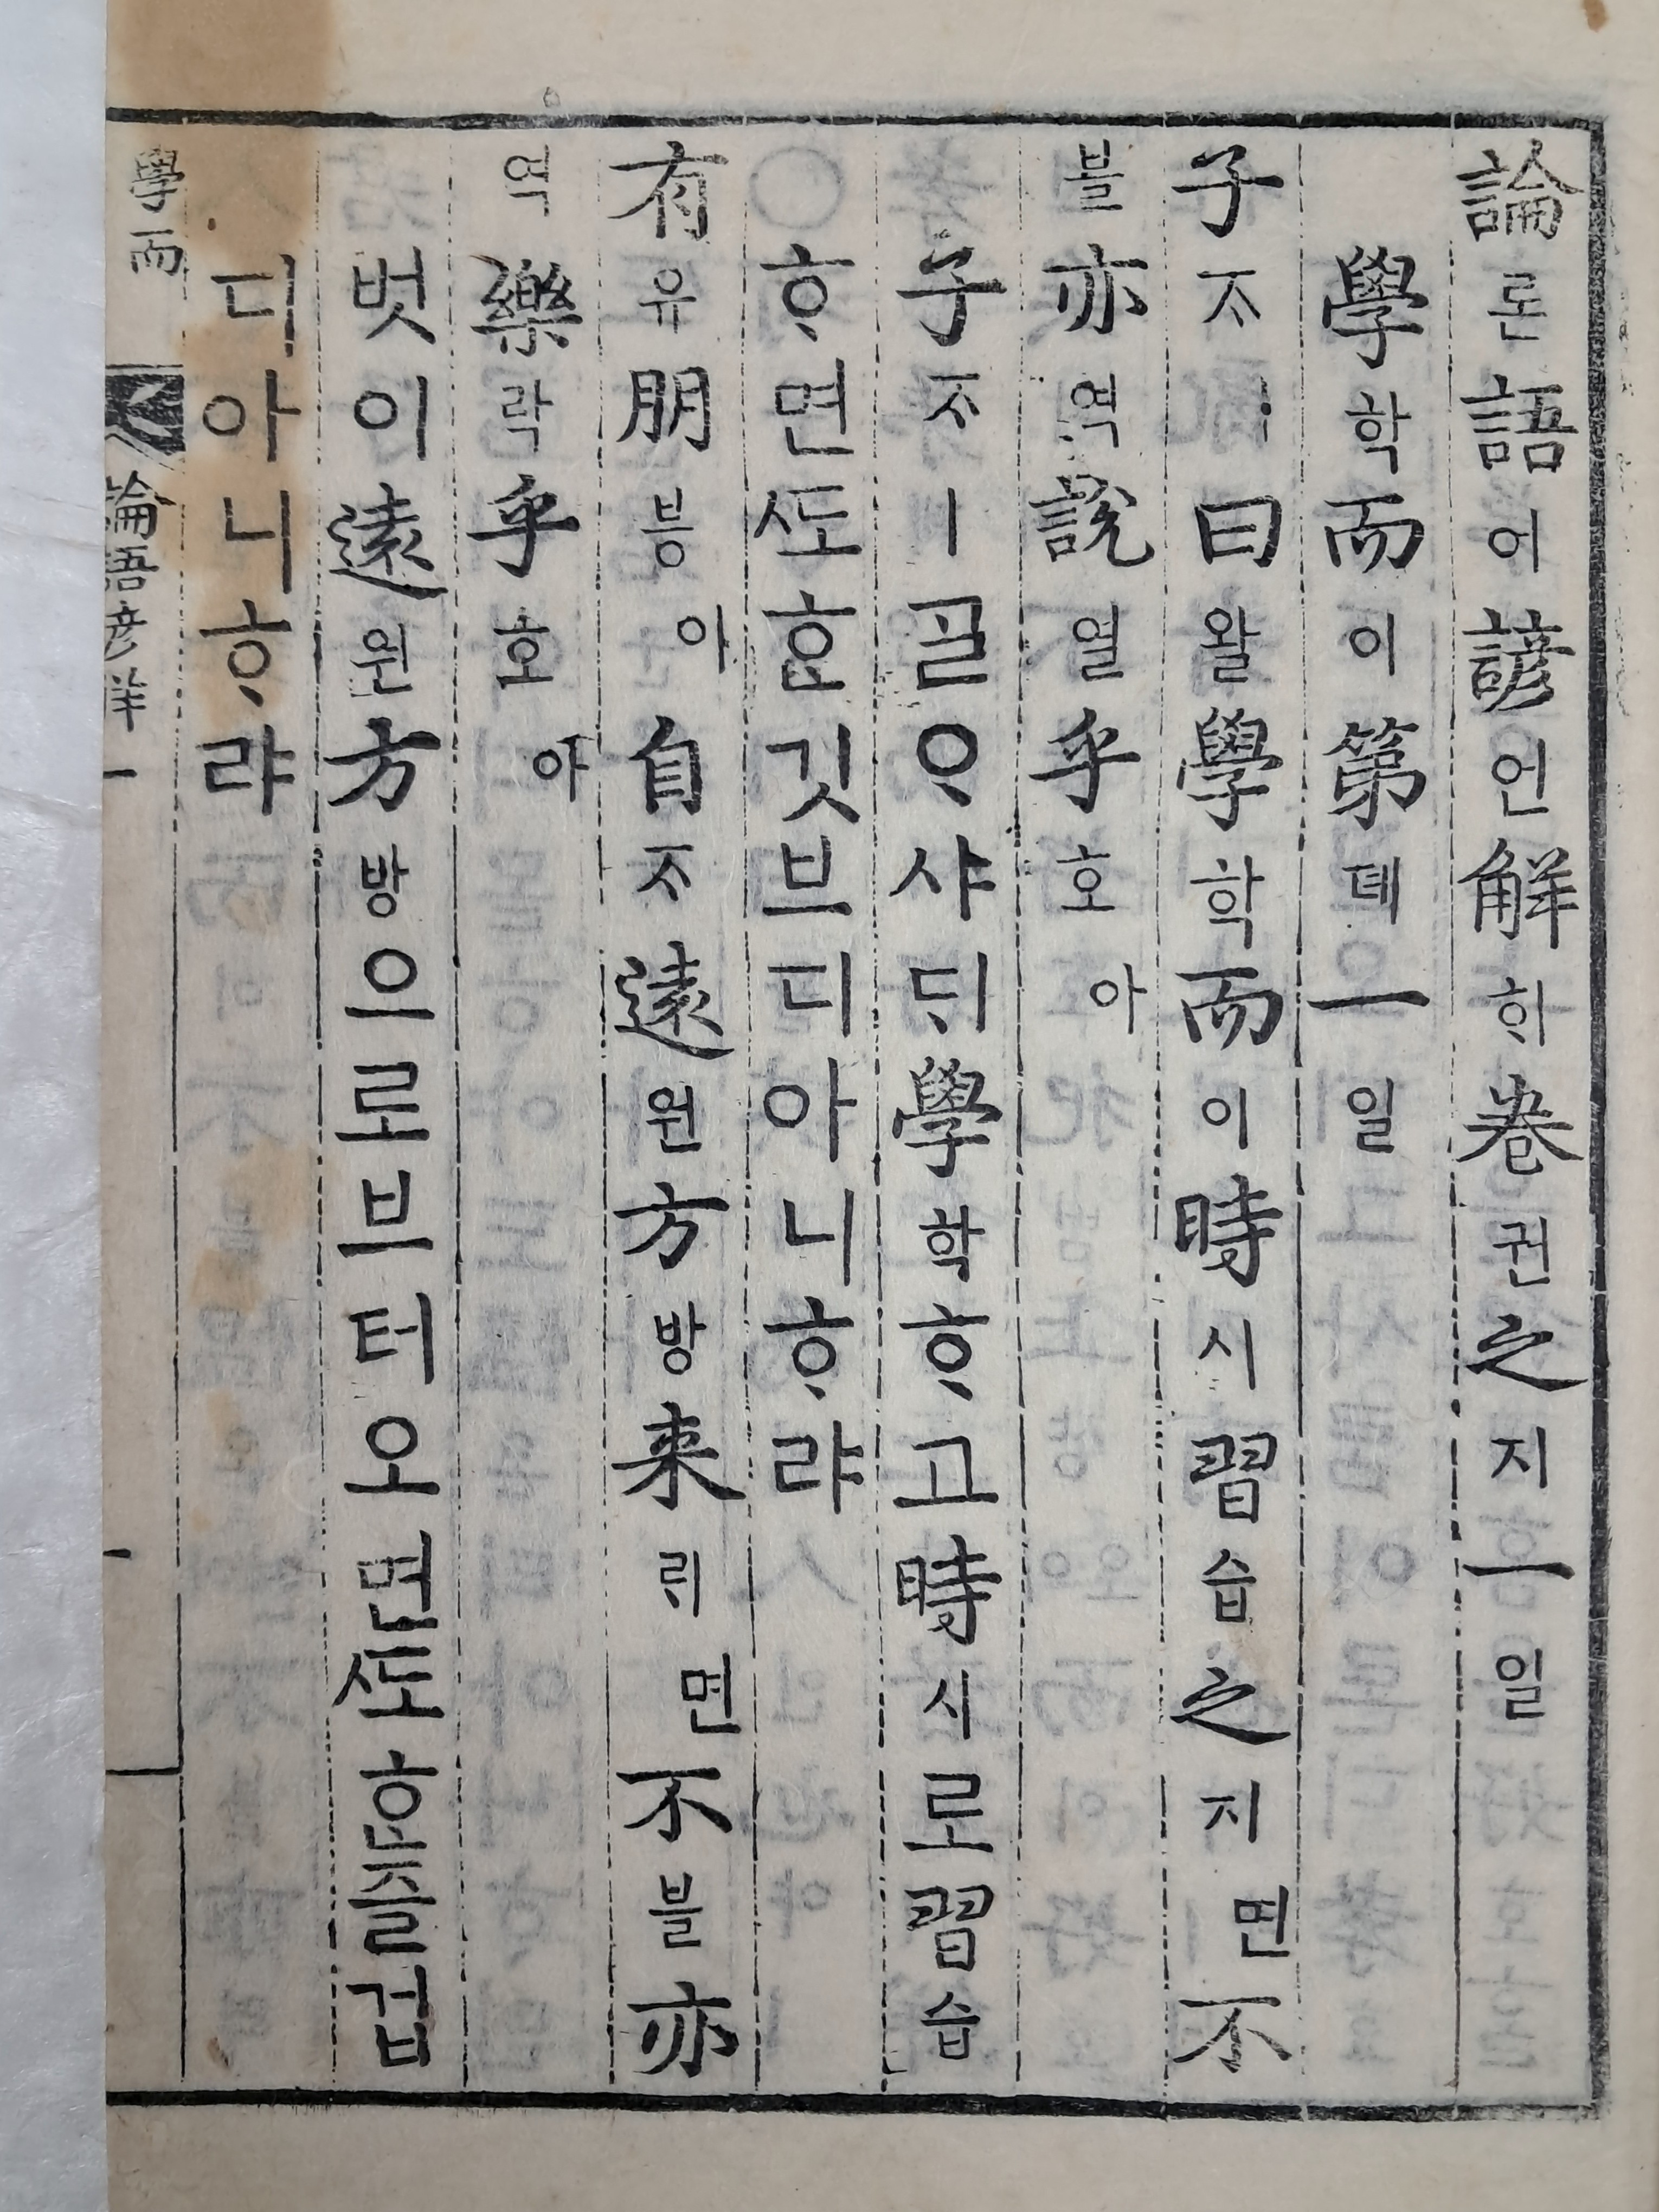 論론語어諺언解ᄒᆡ卷권之지一일
學학而이第뎨一일
子ᄌᆞㅣ曰왈學학而이時시習습之지면不
블亦역說열乎호아
子ᄌᆞㅣᄀᆞᆯᄋᆞ샤ᄃᆡ學학ᄒᆞ고時시로習습
ᄒᆞ면ᄯᅩᄒᆞᆫ깃브디아니ᄒᆞ랴
有유朋븡이自ᄌᆞ遠원方방来ᄅᆡ면不블亦
역樂락乎호아
벗이遠원方방으로브터오면ᄯᅩᄒᆞᆫ즐겁
디아니ᄒᆞ랴
學而 論語諺解 一